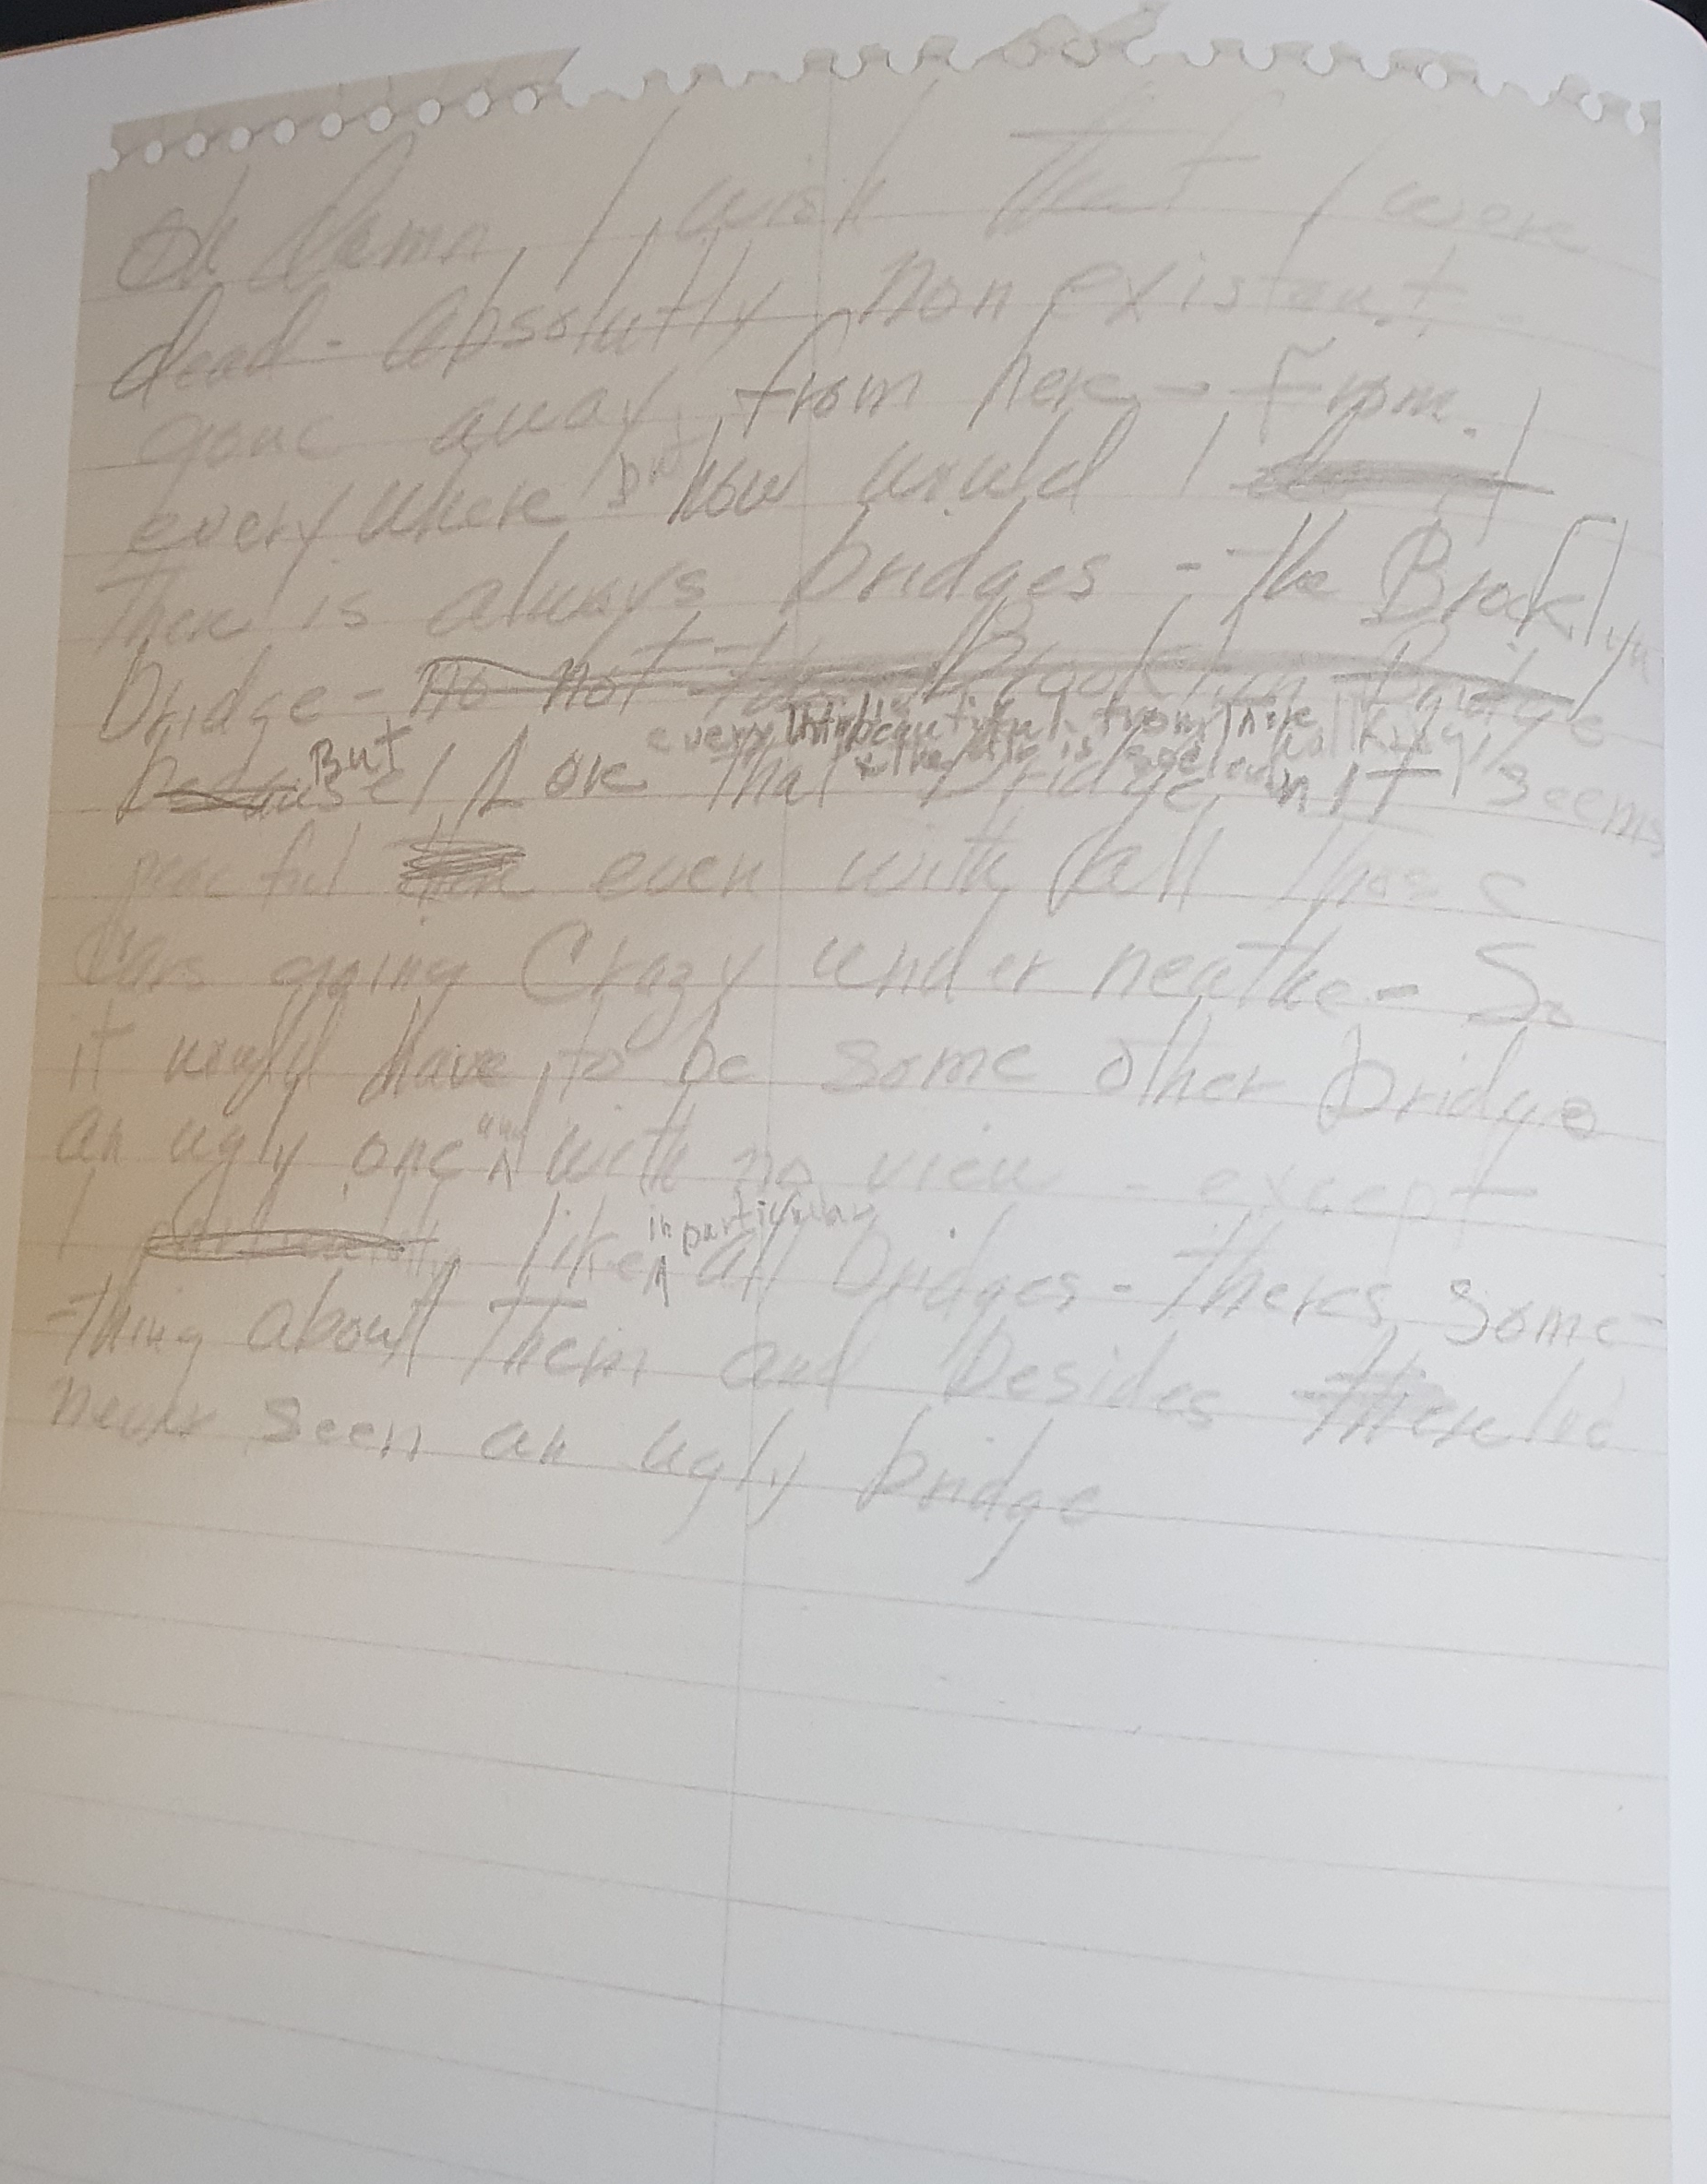 Oh damn I wish that I were
dead - absolutly non existant -
gone away from here - from
every where but how would I
There is always bridges - the Brooklyn
bridge - no not the Brooklyn Bridge
everything is beautiful from there
But
because I Love that bridge
walking
& the air is so clean
in it seems
peaceful there even with all those
cars going crazy under neathe - So
it would have to be some other bridge
an ugly one with no view - except
in particular
I particularly like all bridges - theres some-
thing about them and besides there I've
never seen an ugly bridge